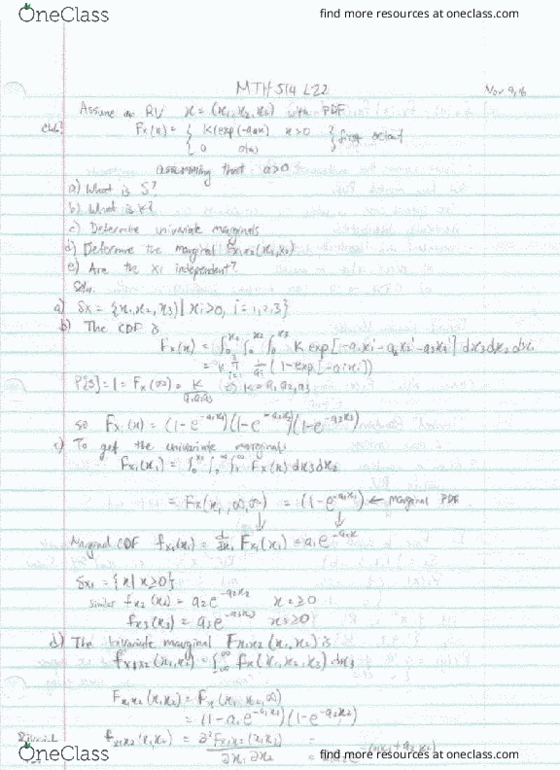 OneClass
find more resources at oneclass.com
MTH 514 L22
Nov 9, 16
Assume an RV x = (x1, x2, x3) with PDF
Fx(x) = { K(exp(-aox) x>0 } first octant
{ 0 o/w
assuming that a>0
a) What is S?
b) What is K?
c) Determine univariate marginals
d) Determine the marginal fx1x2(x1,x2)
e) Are the xi independent?
Soln.
a) Sx = {x1, x2, x3) | xi>0, i=1,2,3}
b) The CDF is
Fx(x) = ∫0^x1 ∫0^x2 ∫0^x3 K exp[-a1x1'-a2x2'-a3x3'] dx3dx2dx1
= K π 1/ai (1-exp[-aixi])
P[S]=1=Fx(∞) = K/a1a2a3 ⇒ K=a1a2a3
so Fx(x) = (1-e^-a1x1)(1-e^-a2x2)(1-e^-a3x3)
c) To get the univariate marginals
Fx1(x1) = ∫0^x1 ∫0^∞ ∫0^∞ Fx(x) dx3dx2
= Fx(x1,∞,∞) = (1-e^-a1x1) ← Marginal PDF
Marginal CDF fx1(x1) = d/dx1 Fx1(x1) = a1e^-a1x
Sx1 = {x | x≥0}
similar fx2(x2) = a2e^-a2x2 x2≥0
fx3(x3) = a3e^-a3x3 x3≥0
d) The bivariate marginal Fx1x2(x1,x2) is
fx1x2(x1,x2) = ∫-∞^∞ fx(x1,x2,x3) dx3
Fx1x2(x1,x2) = Fx(x1,x2,∞)
= (1-a1e^-a1x1)(1-e^-a2x2)
fx1x2(x1,x2) = ∂²Fx1x2(x1x2) =
∂x1 ∂x2
OneClass
find more resources at oneclass.com